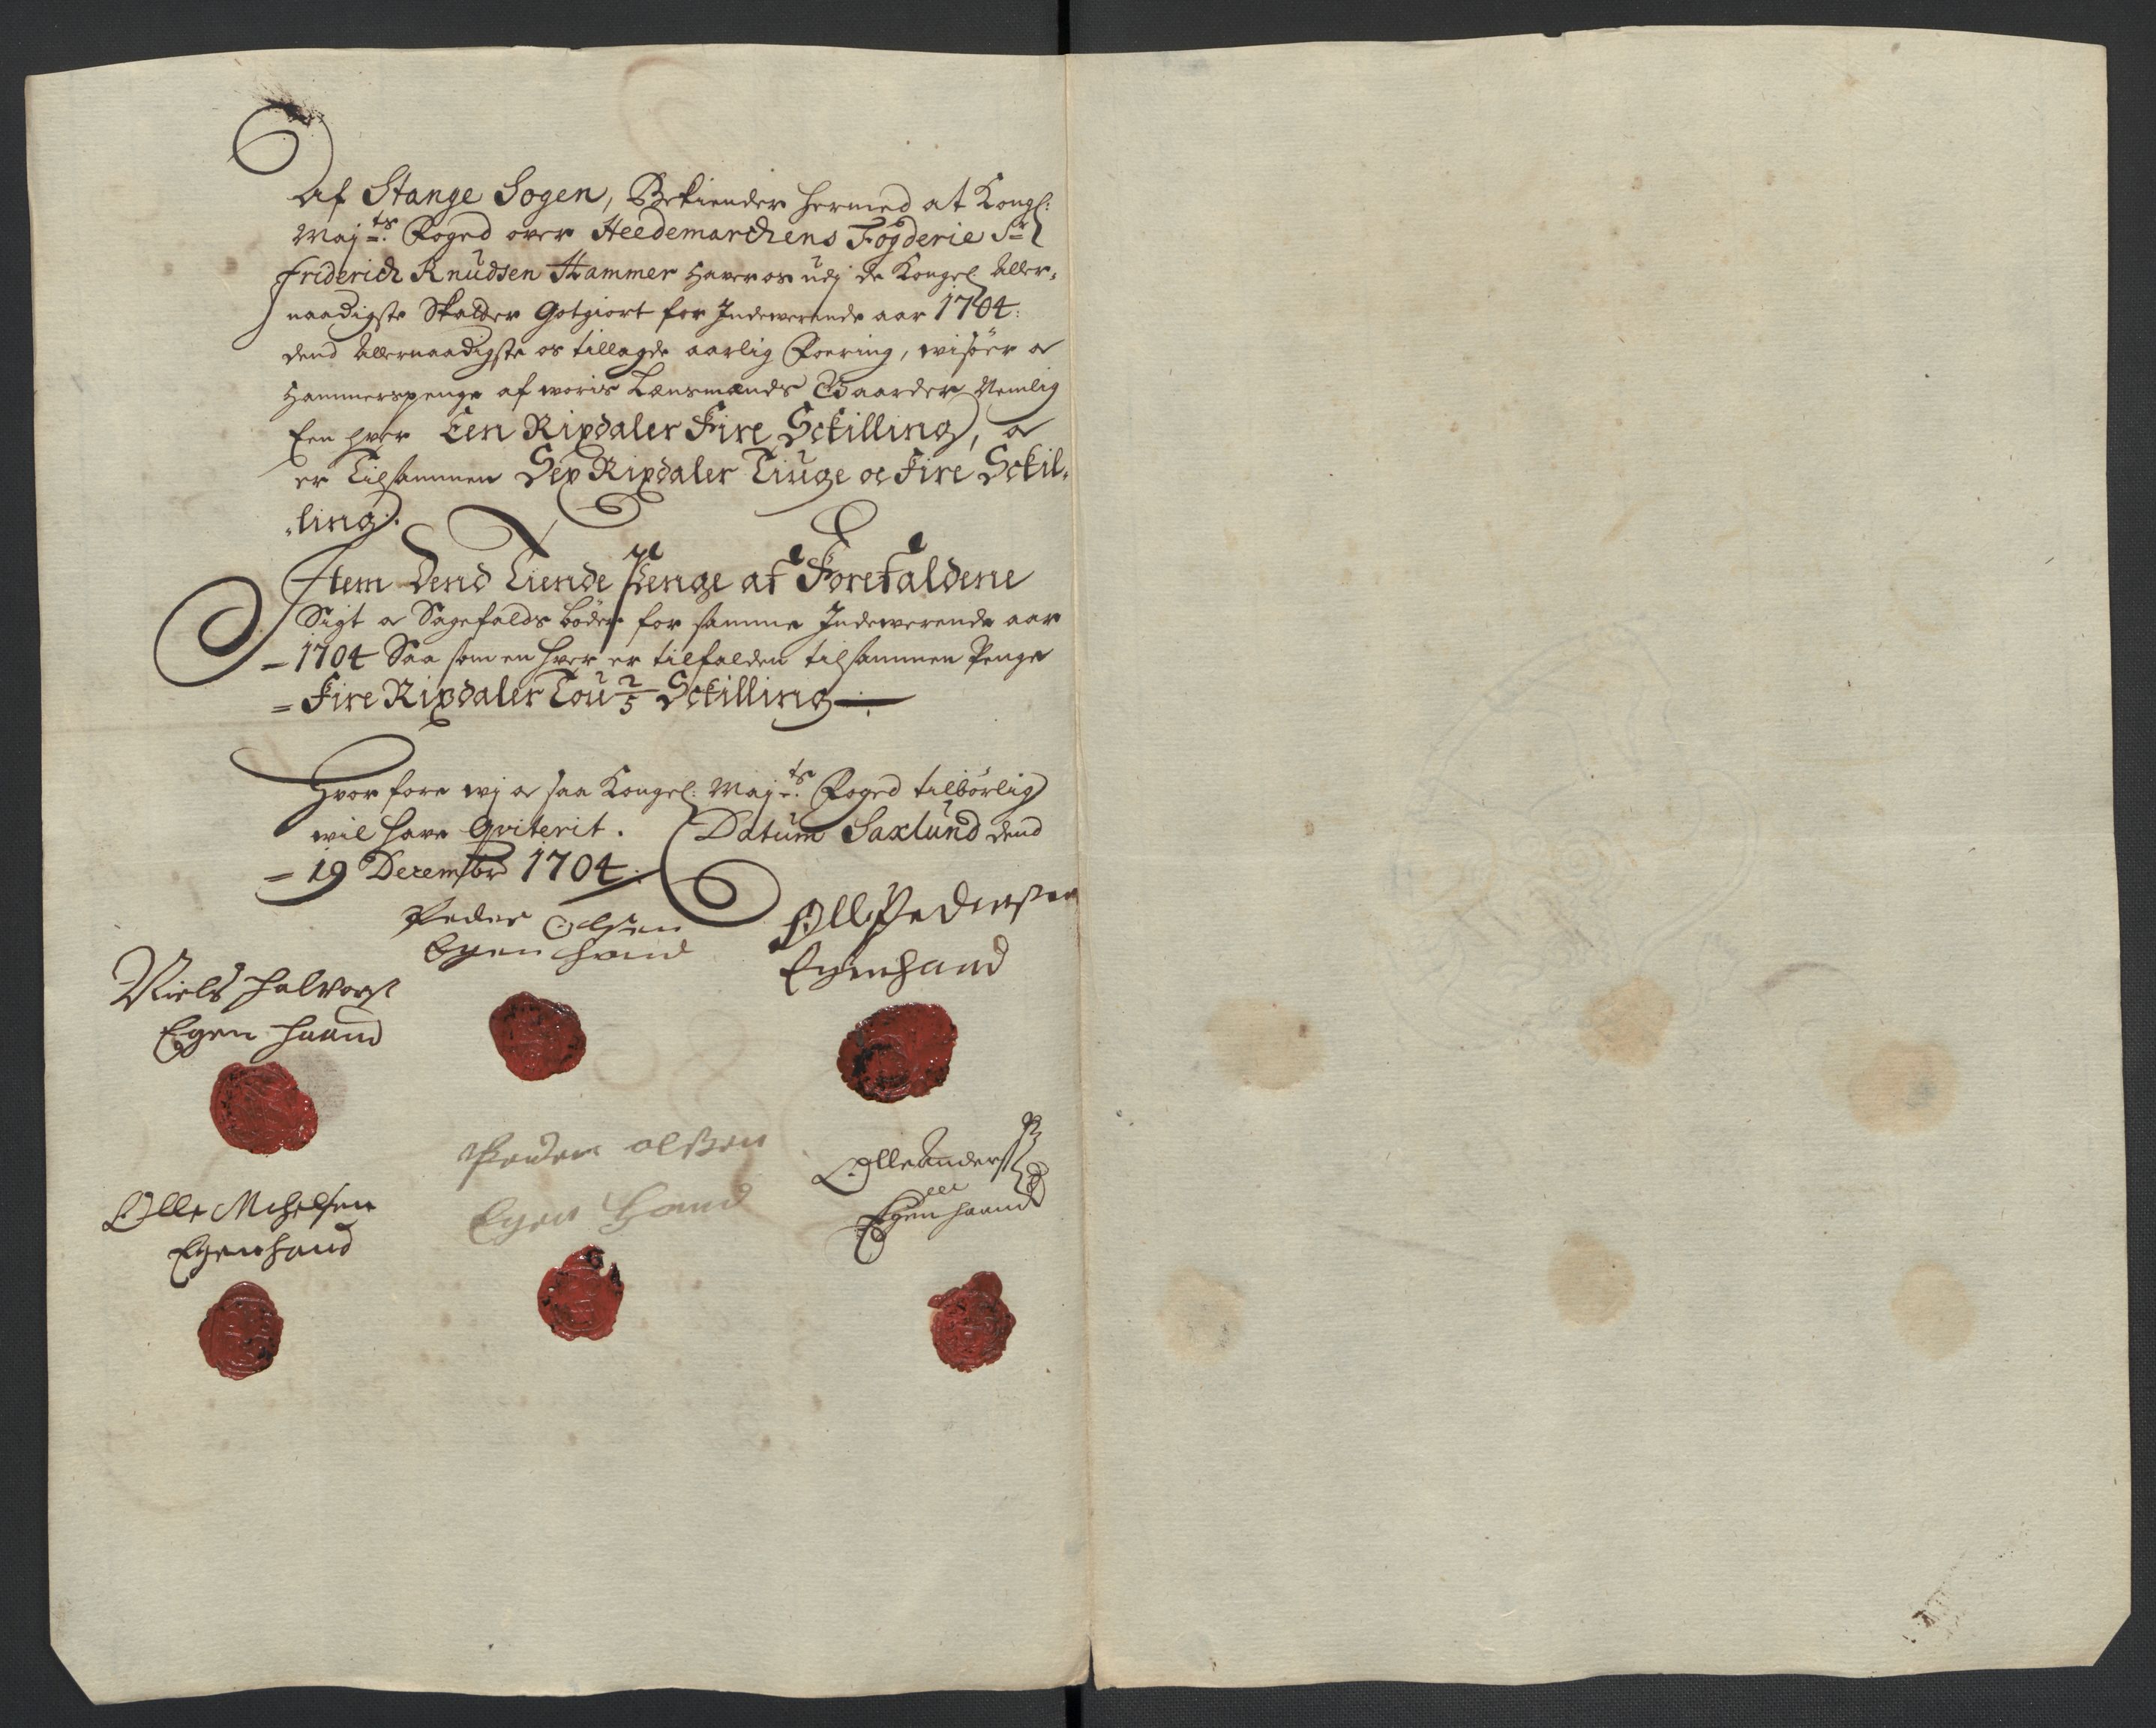 Af Stange Sogen, Bekiender hermed at Kongl:
Maj:ts Foged over Heedemarchens Fögderie Sr
Friderich Knudsen Hammer Haver os udj de Kongel: Aller-
naadigste Skatter Gotgiort for Indewerende aar 1704:
dend Allernaadigste os tillagde aarlig Foering, wisöer oc
Hammerspenge af woris Lænsmænds Gaarder, Nemlig
Een hver Een Rixdaler Fire Sckilling, oc
er Tilsammen Sex Rixdaler Tiuge oc Fire Sckil-
-ling.
Item Dend Tiende Penge af Forefaldene
Sigt oc Sagefalds böder for samme Indewerende aar
- 1704 Saa som en hver er tilfalden tilsammen Penge
= Fire Rixdaler Tou 2/5 Sckilling
Hvor fore wj oc saa Kongel: Maj:ts Foged tilbörlig
wil have Qviterit. Datum Saxlund dend
= 19 Decembr 1704:
Peder Olsen
Egen haand
Oll Pedersen
Egenhand
Niels Halvorss
Egen haand
Peder olssen
Egen Hand
Olle Anders
Egen haand
Olle Michelsen
Egenhand